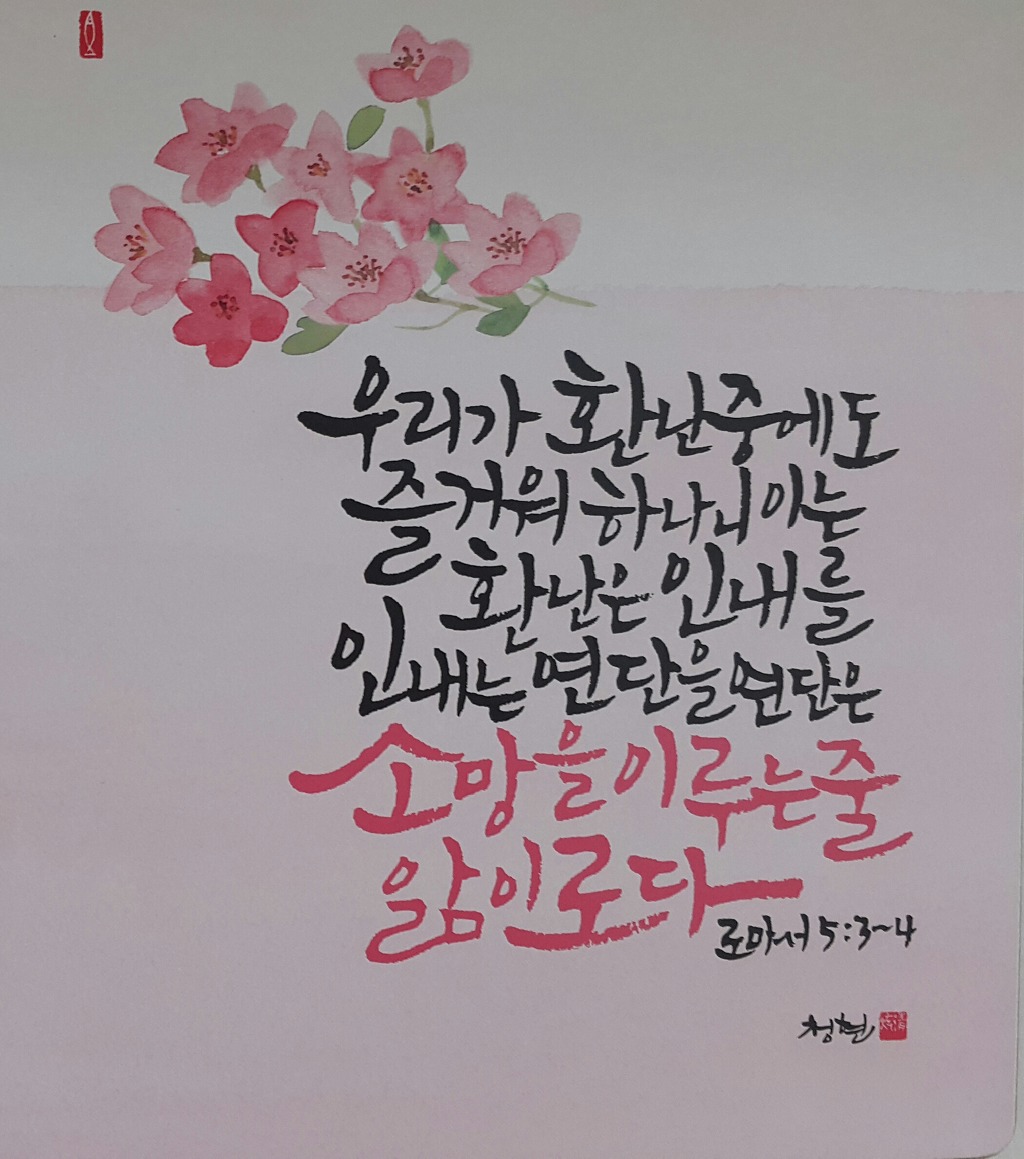 우리가 환난중에도
즐거워 하나니 이는
환난은 인내를
인내는 연단을 연단은
소망을 이루는 줄
앎이로다
로마서 5:3~4
청현